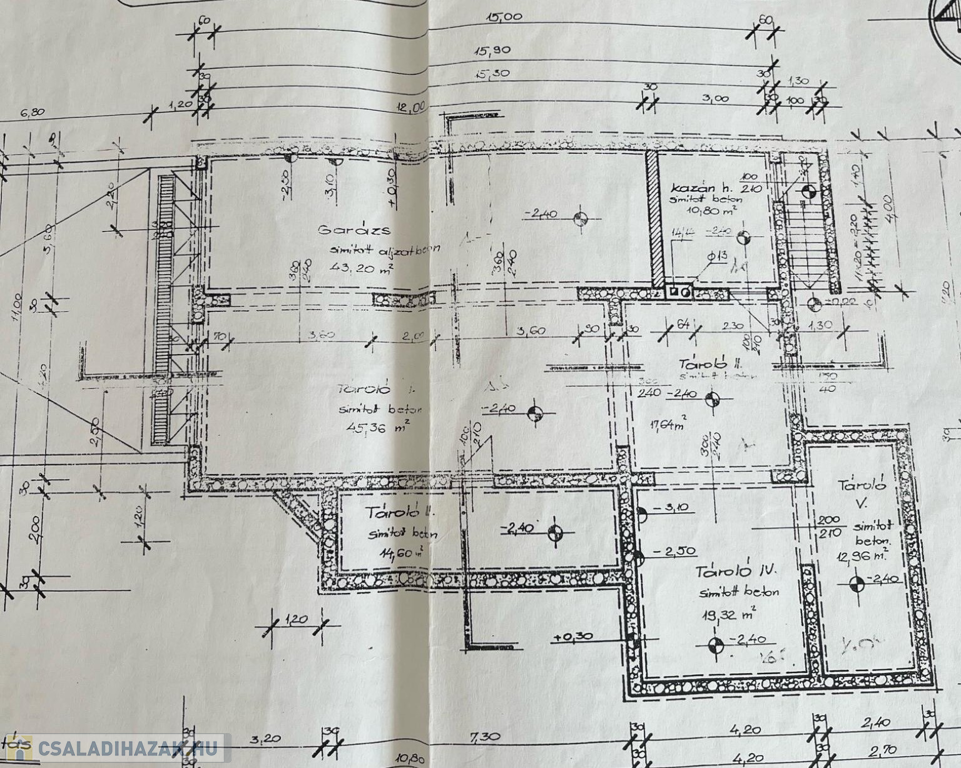 60
15,00
60
15,90
30
15,30
30
1,30
6,80
1,20
12,00
30
3,00
100
-2,50
-3,10
+0,30
-2,40
kazán h.
simitott beton
10,80 m²
100
210
-2,40
Garázs
simitott aljzatbeton
43,20 m²
360
240
360
240
14/14
φ13
1,40
4,00
2,40
5,60
11,00
30
70
3,60
2,00
3,60
90
30
64
230
30
1,30
100
210
Tároló I.
simitott beton
45,36 m²
-2,40
Tároló II.
240
-2,40
17,64 m²
40
100
210
300
240
30
2,00
30
1,20
Tároló II.
simitott beton
14,60 m²
-2,40
-3,10
-2,50
200
210
Tároló
V.
simitott
beton.
12,96 m²
-2,40
Tároló IV.
simitott beton
19,32 m²
-2,40
1,20
+0,30
30
3,20
30
7,30
30
4,20
30
2,40
10,80
4,20
2,70
tás
CSALADIHAZAK.HU